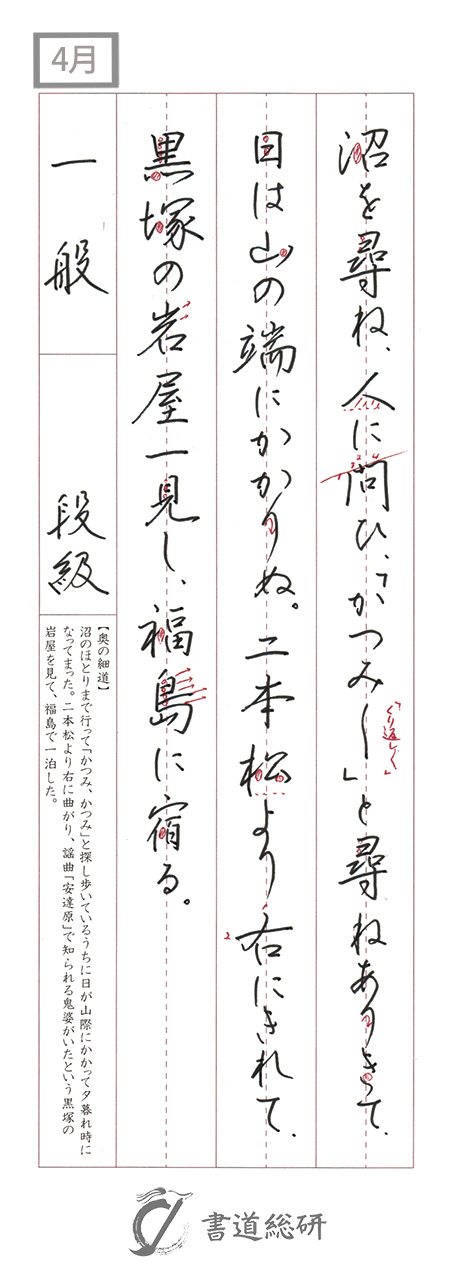 4月
沼を尋ね、人に問ひ、「かつみ〱」と尋ねありきて、
くり返し
日は山の端にかかりぬ。二本松より右にきれて、
2
黒塚の岩屋一見し、福島に宿る。
一般
段級
【奥の細道】
沼のほとりまで行って「かつみ、かつみ」と探し歩いているうちに日が山際にかかって夕暮れ時に
なってまった。二本松より右に曲がり、謡曲「安達原」で知られる鬼婆がいたという黒塚の
岩屋を見て、福島で一泊した。
書道総研